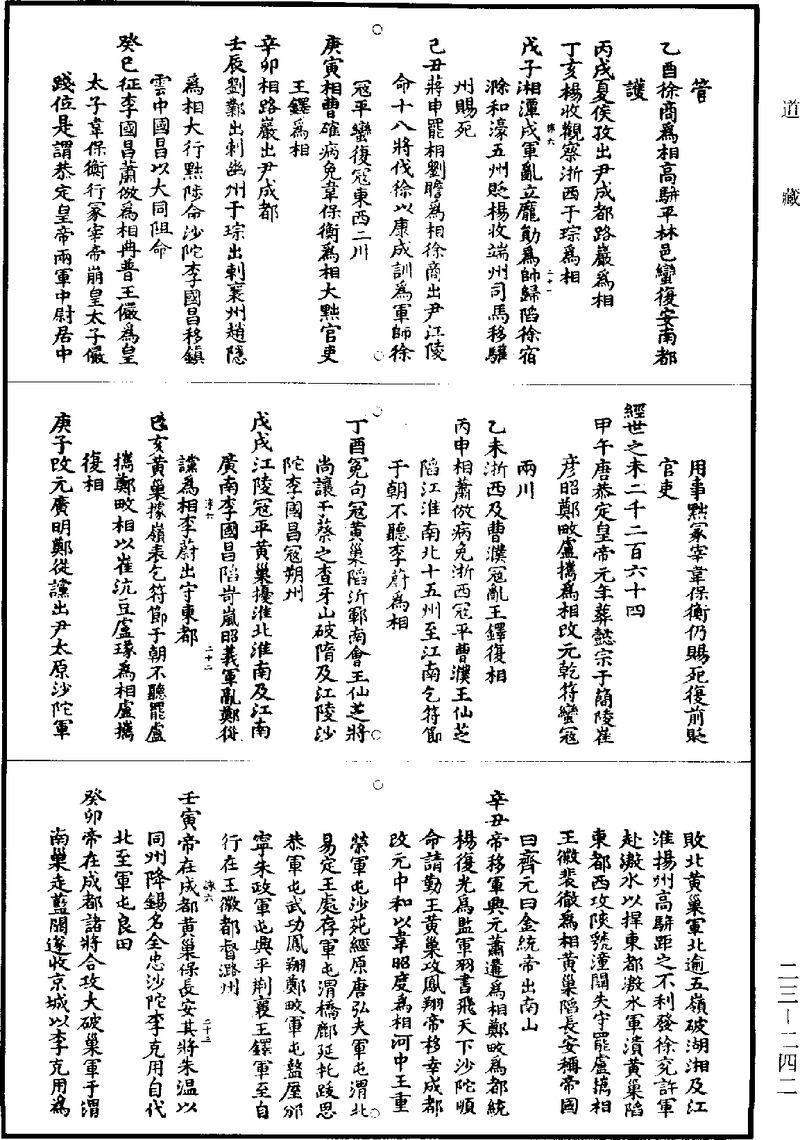 道藏
管
乙酉徐商爲相高駢平林邑蠻復安南都
護
丙戌夏侯孜出尹成都路巖爲相
丁亥楊收觀察浙西于琮爲相
戊子湘潭戍軍亂立龐勛爲帥歸陷徐宿
滁和濠五州貶楊收端州司馬移驩
州賜死
己丑蔣申罷相劉瞻爲相徐商出尹江陵
命十八將伐徐以康成訓爲軍師徐
冦平蠻復冦東西二川
庚寅相曹確病免韋保衡爲相大黜官吏
王鐸爲相
辛卯相路巖出尹成都
壬辰劉鄴出刺幽州于琮出刺襄州趙隱
爲相大行黜陟命沙陀李國昌移鎮
雲中國昌以大同阻命
癸巳征李國昌蕭倣爲相冉普王儼爲皇
太子韋保衡行冢宰帝崩皇太子儼
踐位是謂恭定皇帝兩軍中尉居中
用事黜冢宰韋保衡仍賜死復前貶
官吏
經世之未二千二百六十四
甲午唐恭定皇帝元年葬懿宗于蕑陵崔
彥昭鄭畋盧攜爲相改元乾符蠻冦
兩川
乙未浙西及曹濮冦亂王鐸復相
丙申相蕭倣病免浙西冦平曹濮王仙芝
陷江淮南北十五州至江南乞符節
于朝不聽李蔚爲相
丁酉冤句冦黃巢陷沂鄆南會王仙芝將
尚讓于蔡之查牙山破隋及江陵沙
陀李國昌冦朔州
戊戌江陵冦平黃巢擾淮北淮南及江南
廣南李國昌陷岢嵐昭義軍亂鄭從
讜爲相李蔚出守東都
己亥黃巢據嶺表乞符節于朝不聽罷盧
攜鄭畋相以崔沆豆盧瑑爲相盧攜
復相
庚子改元廣明鄭從讜出尹太原沙陀軍
敗北黃巢軍北逾五嶺破湖湘及江
淮揚州高駢距之不利發徐兖許軍
赴溵水以捍東都溵水軍潰黃巢陷
東都西攻陝虢潼關失守罷盧攜相
王徽裴徹爲相黃巢陷長安稱帝國
曰齊元曰金統帝出南山
辛丑帝移軍興元蕭遘爲相鄭畋爲都統
楊復光爲監軍羽書飛天下沙陀順
命請勤王黃巢攻鳳翔帝移幸成都
改元中和以韋昭度爲相河中王重
榮軍屯沙苑經原唐弘夫軍屯渭北
易定王處存軍屯渭橋鄜延托跋思
恭軍屯武功鳳翔鄭畋軍屯盩厔邠
寧朱政軍屯興平荆襄王鐸軍至自
行在王徽都督潞州
壬寅帝在成都黃巢保長安其將朱温以
同州降錫名全忠沙陀李克用自代
北至軍屯良田
癸卯帝在成都諸將合攻大破巢軍于渭
南巢走藍關遂收京城以李克用爲
二三—二四二